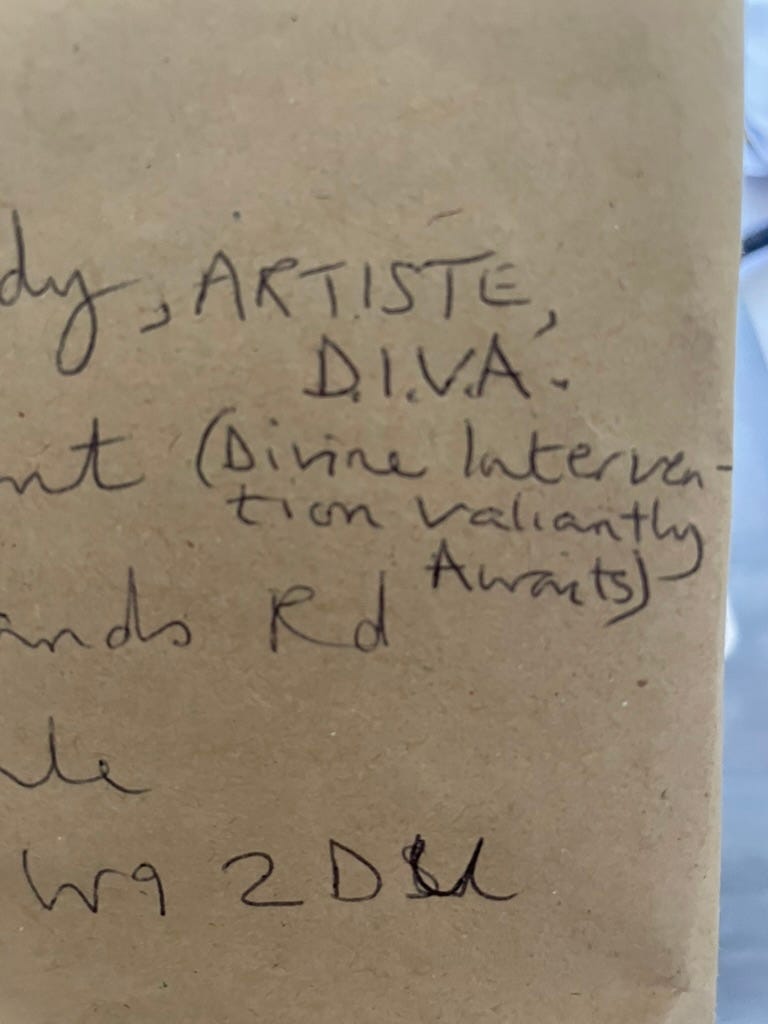 dy, ARTISTE,
D.I.V.A.
nt (Divine Interven-
tion valiantly
Awaits)
ands Rd
ale
W9 2D